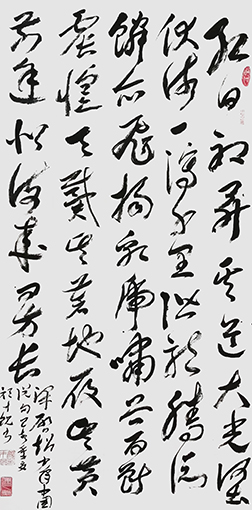 红日初升其道大光河出
伏流一泻汪洋潜龙腾渊
鳞爪飞扬乳虎啸谷百兽
震惶天戴其苍地履其黄
前途似海来日方长
梁启超少年中国
说句己亥